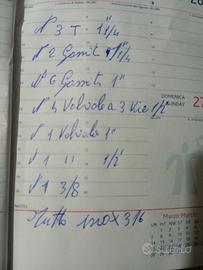 N° 3 T. 1"1/4
N° 2 Gomiti 1"1/4
N° 6 Gomiti 1"
N° 4 Valvole a 3 Vie 1/2
N° 1 Valvola 1"
N° 1 11 1/2"
N° 1 3/8
Tutto inox 316
DOMENICA
SUNDAY
27
Marzo March
Subito